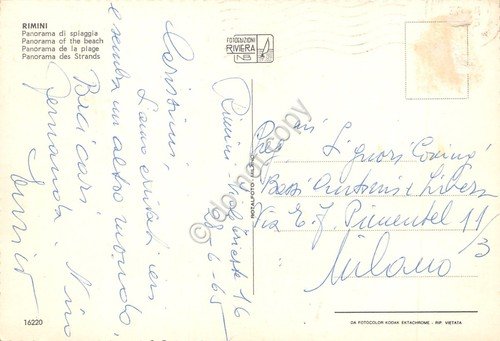 RIMINI
Panorama di spiaggia
Panorama of the beach
Panorama de la plage
Panorama des Strands
FOTOEDIZIONI
RIVIERA
NB
Carissimi
Siamo arrivati ieri
e sembra un altro mondo,
Baci cari
Fernanda. Nino
Enrico
Rimini Trieste 16
28-6-65
Signori Coniugi
Bassi Antonio e Libera
Via E. F. Pimentel 11/3
Milano
16220
DA FOTOCOLOR KODAK EKTACHROME - RIP. VIETATA